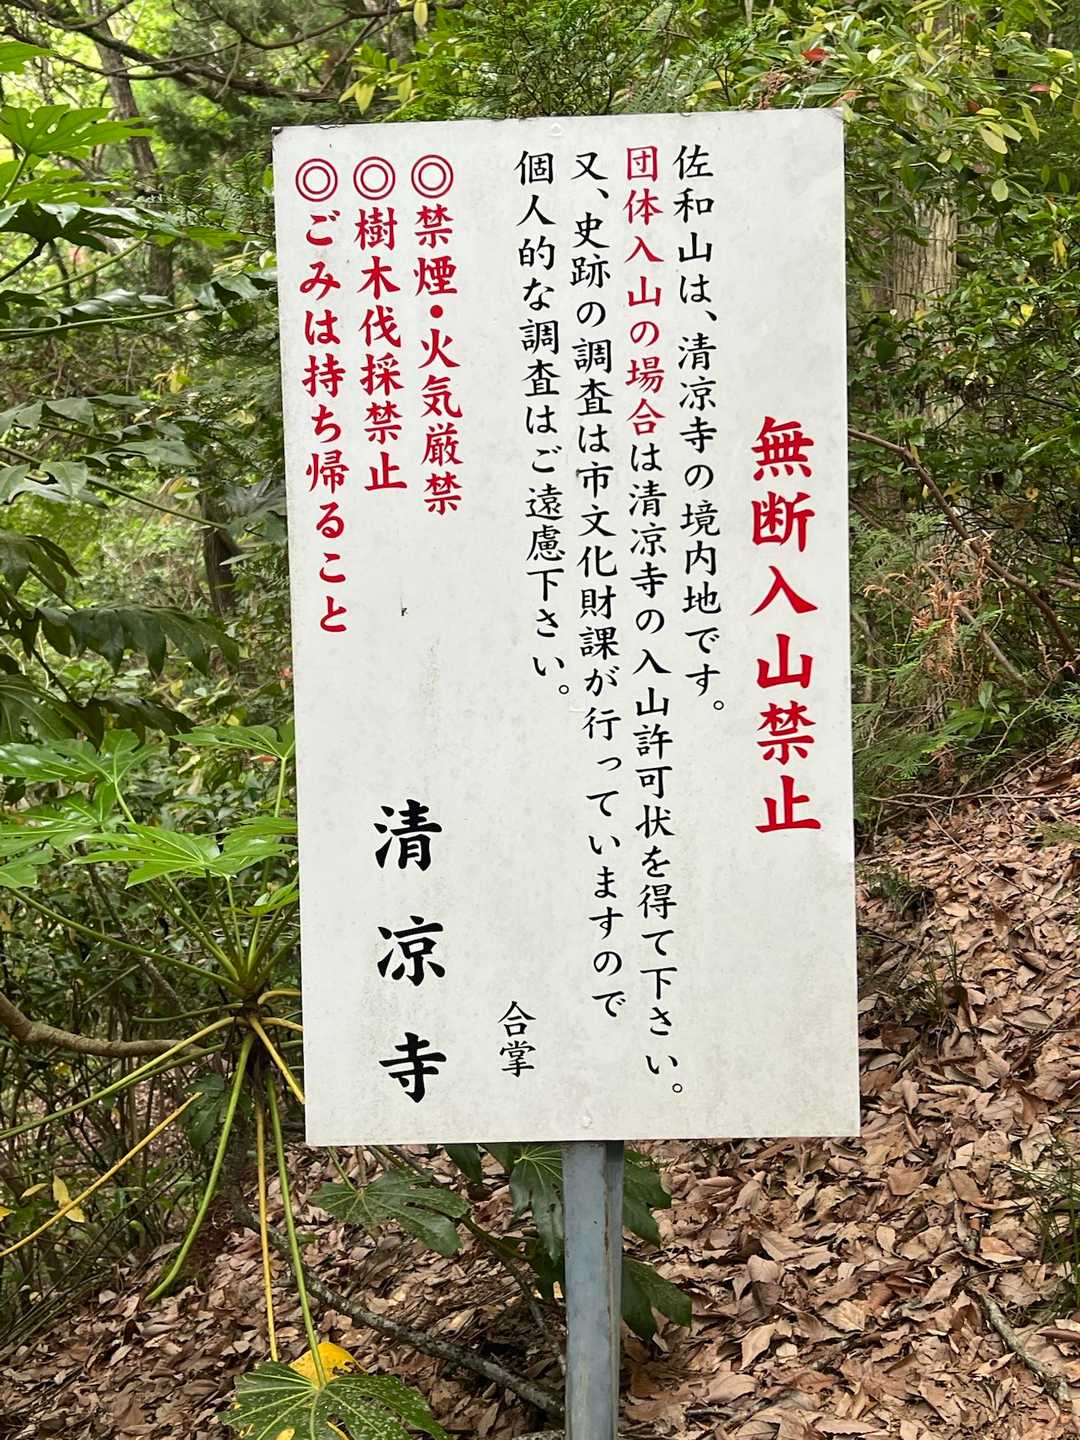 無断入山禁止
佐和山は、清凉寺の境内地です。
団体入山の場合は清凉寺の入山許可状を得て下さい。
又、史跡の調査は市文化財課が行っていますので
個人的な調査はご遠慮下さい。
合掌
◎禁煙・火気厳禁
◎樹木伐採禁止
◎ごみは持ち帰ること
清凉寺